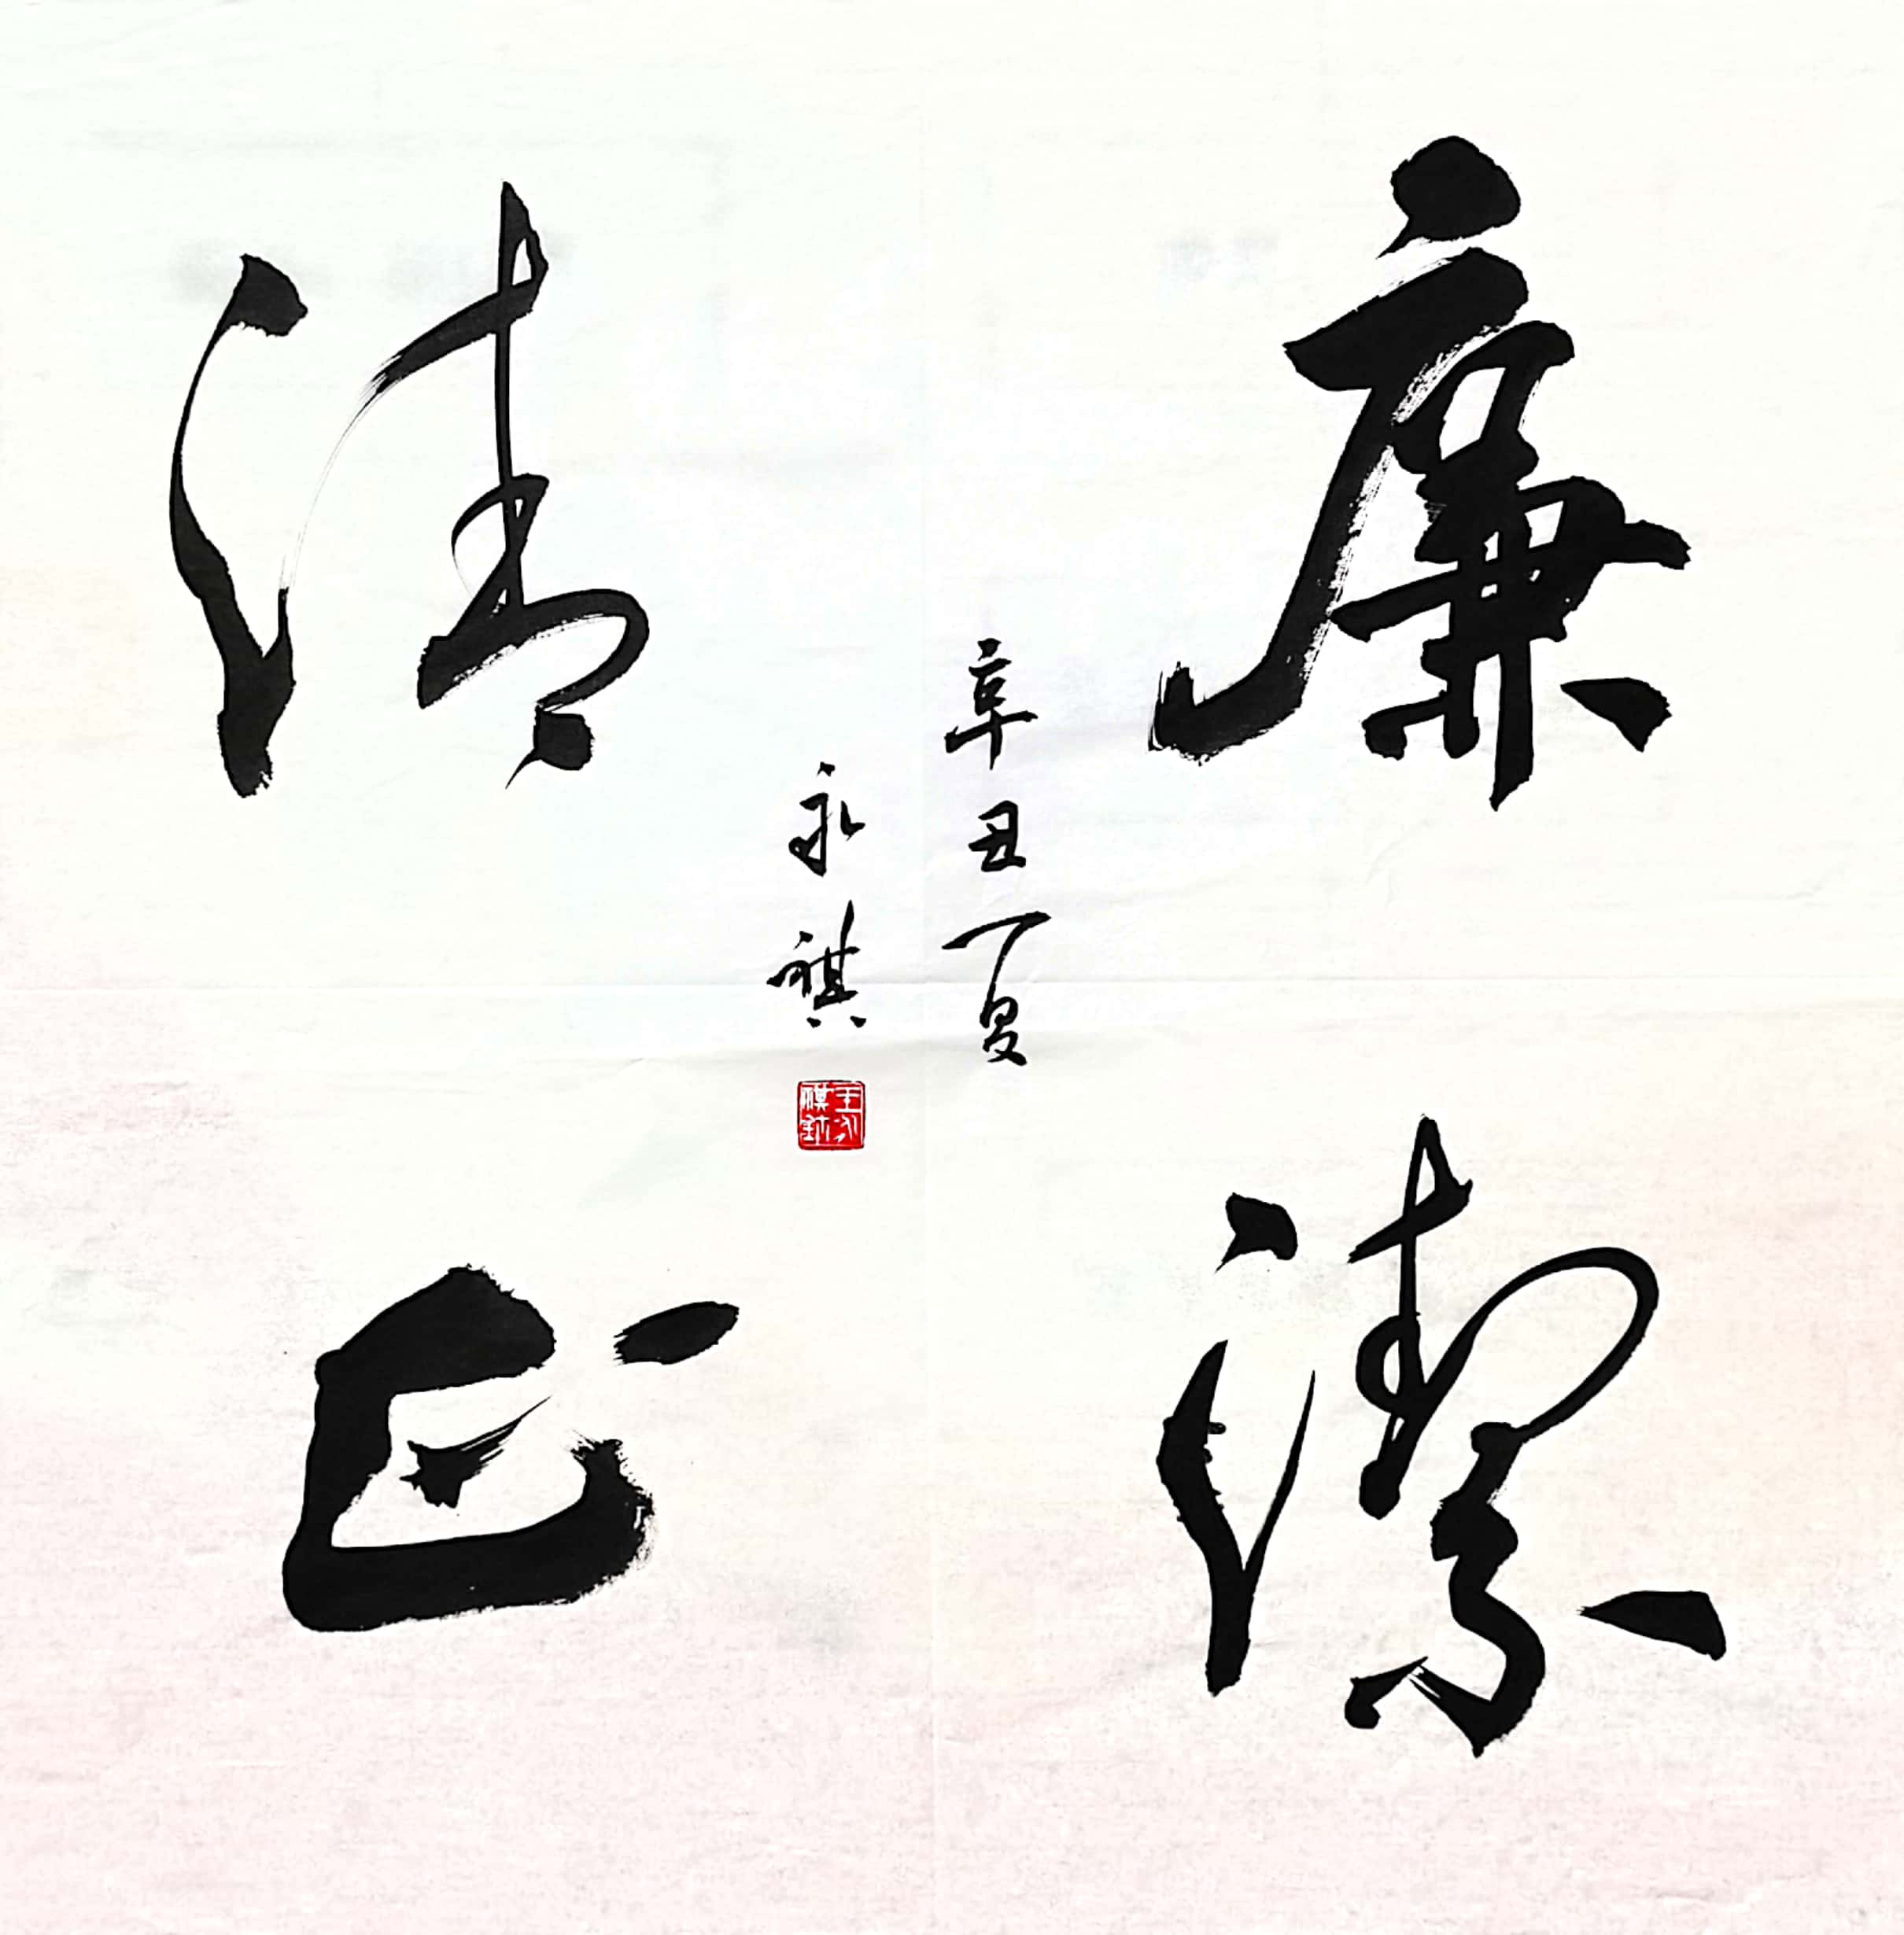 廉潔
清正
辛丑夏
永祺
王永祺鈢